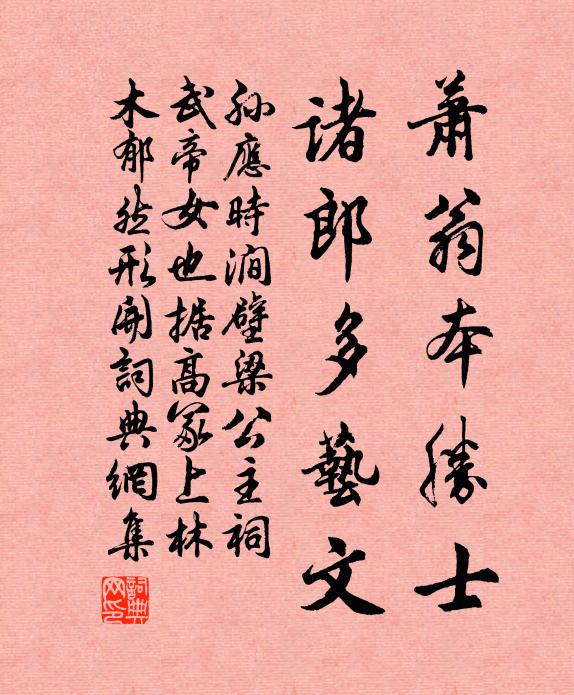 蕭翁本勝士
諸郎多藝文
孫應時澗壁梁公主祠
武帝女也据高冢上林
木郁然形開詞典網集
詞典網印